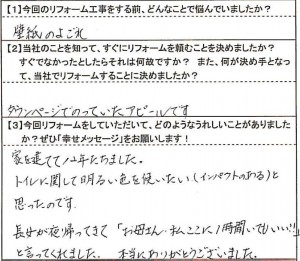 【1】今回のリフォーム工事をする前、どんなことで悩んでいましたか？
壁紙のよごれ
【2】当社のことを知って、すぐにリフォームを頼むことを決めましたか？
すぐでなかったとしたらそれは何故ですか？ また、何が決め手となっ
て、当社でリフォームすることに決めましたか？
タウンページでのっていたアピールです
【3】今回リフォームをしていただいて、どのようなうれしいことがありました
か？ぜひ「幸せメッセージ」をお願いします！
家を建てて12年たちました。
トイレに関して明るい色を使いたい（インパクトのある）と
思ったのです。
長女が夜帰ってきて「お母さん、私ここに1時間いてもいい!!」
と言ってくれました。 本当にありがとうございました。